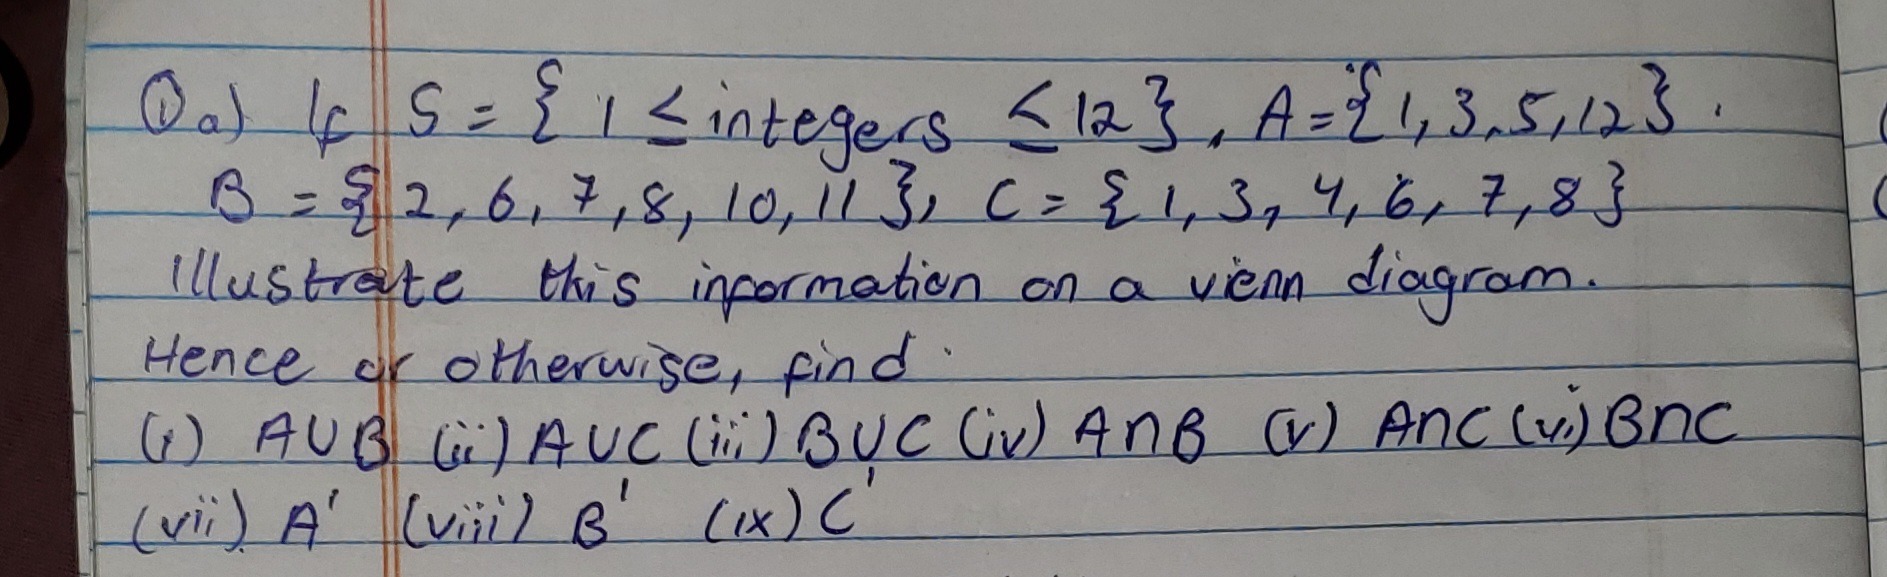 ① a) If S = { 1 ≤ integers ≤ 12 }, A = { 1, 3, 5, 12 }.
B = { 2, 6, 7, 8, 10, 11 }, C = { 1, 3, 4, 6, 7, 8 }
Illustrate this information on a vienn diagram.
Hence or otherwise, find.
(i) A∪B (ii) A∪C (iii) B∪C (iv) A∩B (v) A∩C (vi) B∩C
(vii) A' (viii) B' (ix) C'